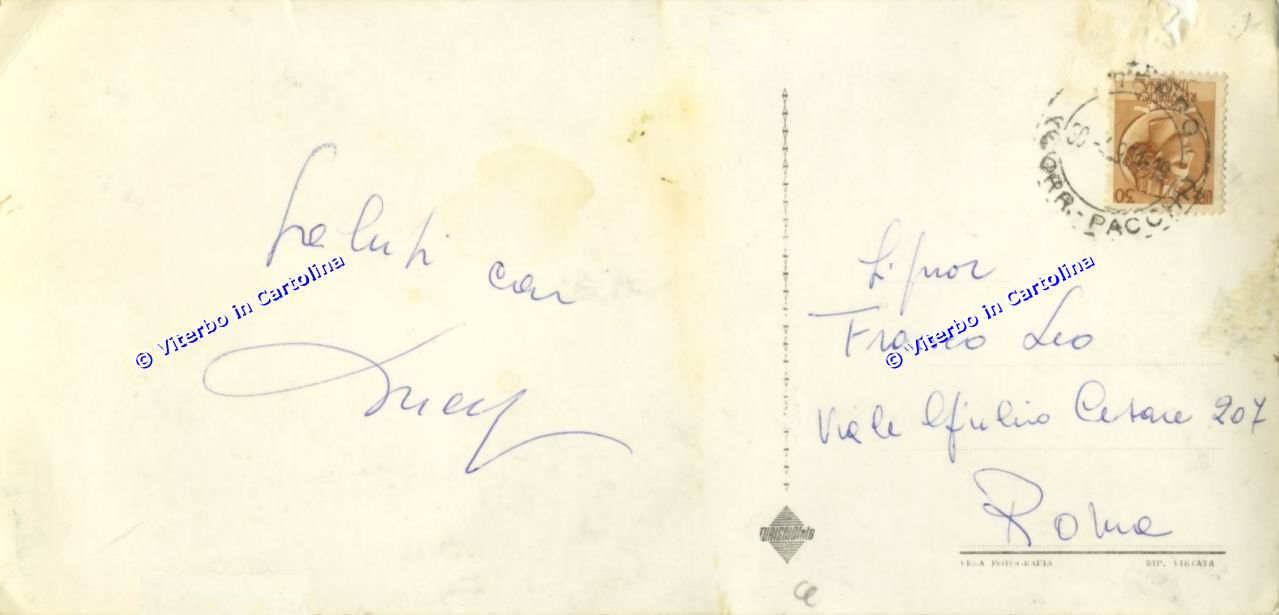 Saluti
cari
© Viterbo in Cartolina
REPUBBLICA
ITALIANA
LIRE 30
CORR. - PACCHI
Signor
Franco Leo
© Viterbo in Cartolina
Viale Giulio Cesare 207
Roma
TURISMOfoto
VERA FOTOGRAFIA RIP. VIETATA